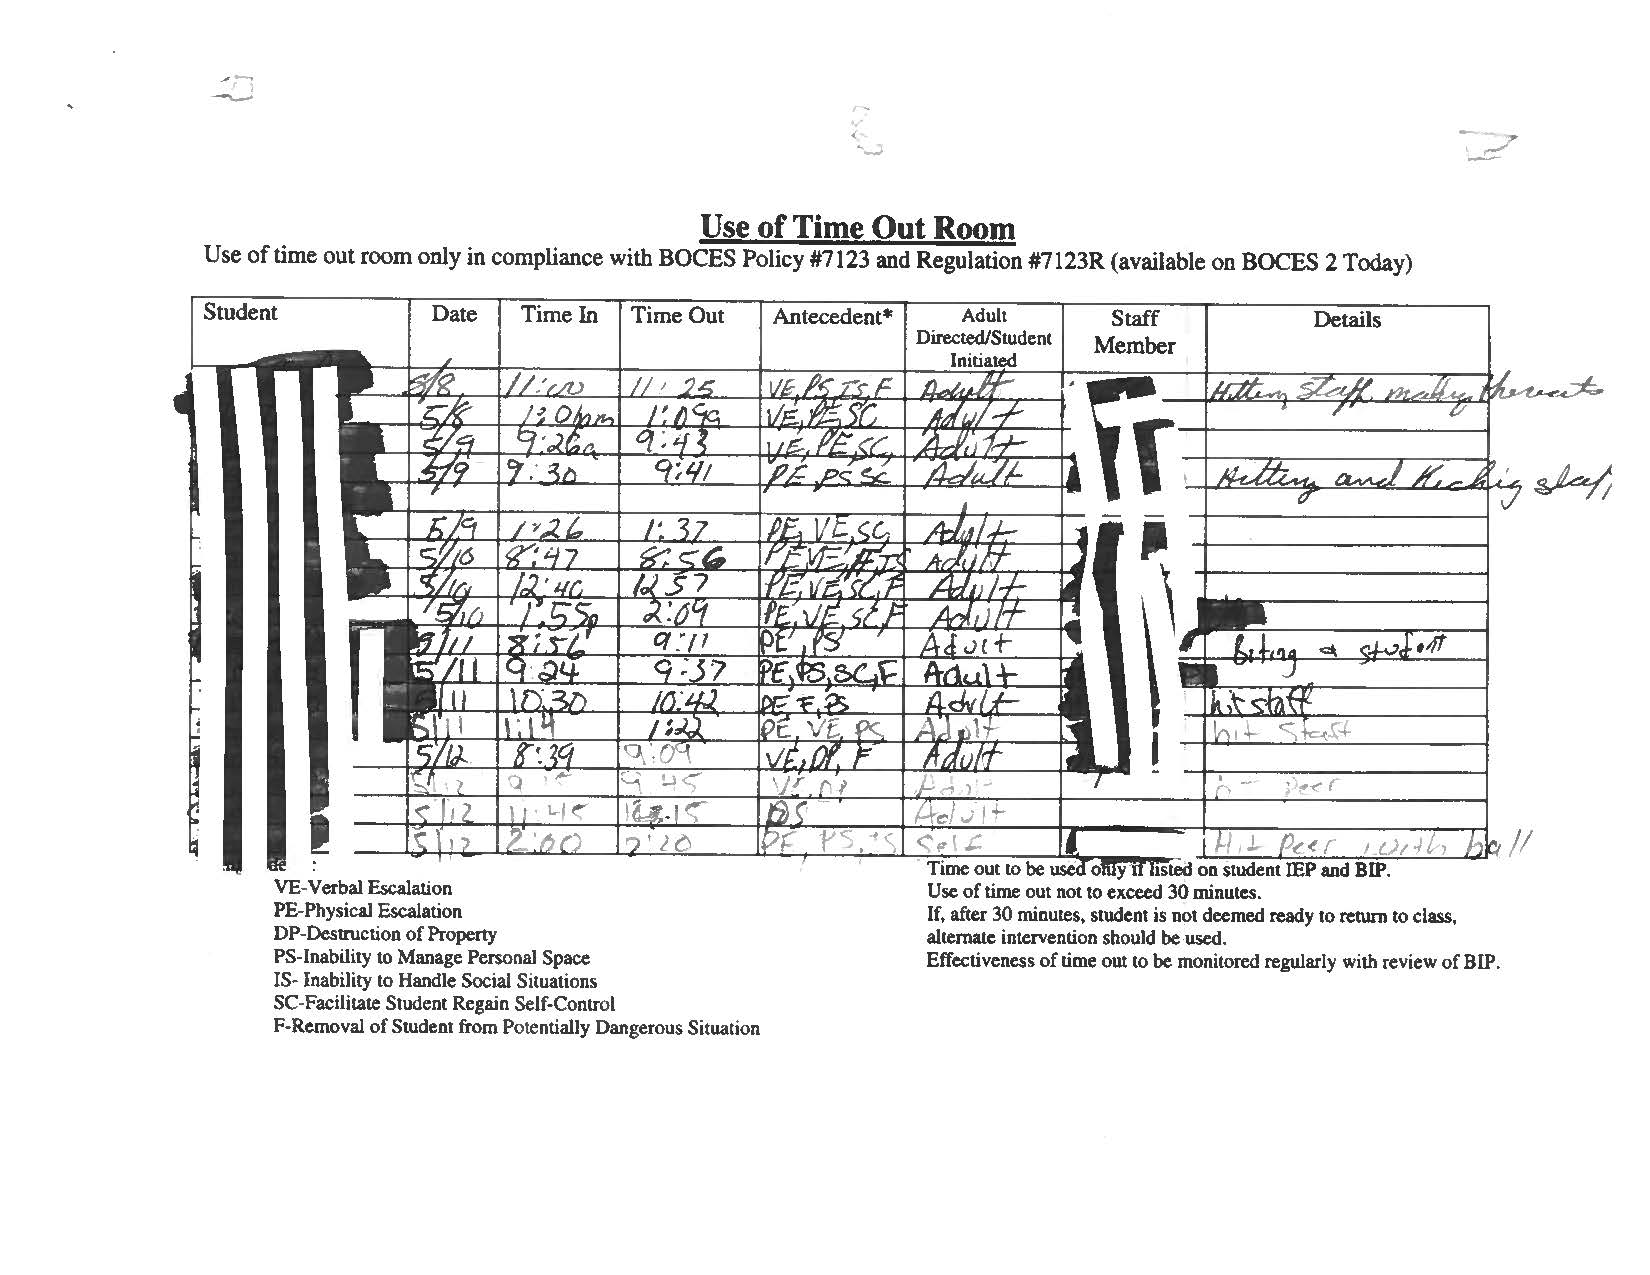 Use of Time Out Room
Use of time out room only in compliance with BOCES Policy #7123 and Regulation #7123R (available on BOCES 2 Today)
Student Date Time In Time Out Antecedent* Adult Directed/Student Initiated Staff Member Details
5/8 11:00 11:25 VE, PS, IS, F Adult Hitting staff making
5/8 1:01pm 1:09 VE, PE, SC Adult
5/9 9:26a 9:43 VE, PE, SC, Adult
5/9 9:30 9:41 PE PS SC Adult Hitting and
5/9 1:26 1:37 PE, VE, SC Adult
5/10 8:47 8:56 PE VE Adult
5/10 12:46 12 57 PE, VE, SC, F Adult
5/10 1:55p 2:09 PE, VE, SC, F Adult
5/11 8:56 9:11 PE, PS Adult Biting a student
5/11 9:24 9:37 PE, PS, SC, F Adult
5/11 10:30 10:42 PE F, PS Adult hit staff
5/11 1:14 1:22 PE, VE, PS Adult hit staff
5/12 8:39 9:09 VE, DP, F Adult
5/12 9:45 Adult Peer
5/12 11:45 Adult
5/12 2:00 2:20 PE, PS, Self Hit Peer with ball
VE-Verbal Escalation
PE-Physical Escalation
DP-Destruction of Property
PS-Inability to Manage Personal Space
IS- Inability to Handle Social Situations
SC-Facilitate Student Regain Self-Control
F-Removal of Student from Potentially Dangerous Situation
Time out to be used only if listed on student IEP and BIP.
Use of time out not to exceed 30 minutes.
If, after 30 minutes, student is not deemed ready to return to class,
alternate intervention should be used.
Effectiveness of time out to be monitored regularly with review of BIP.